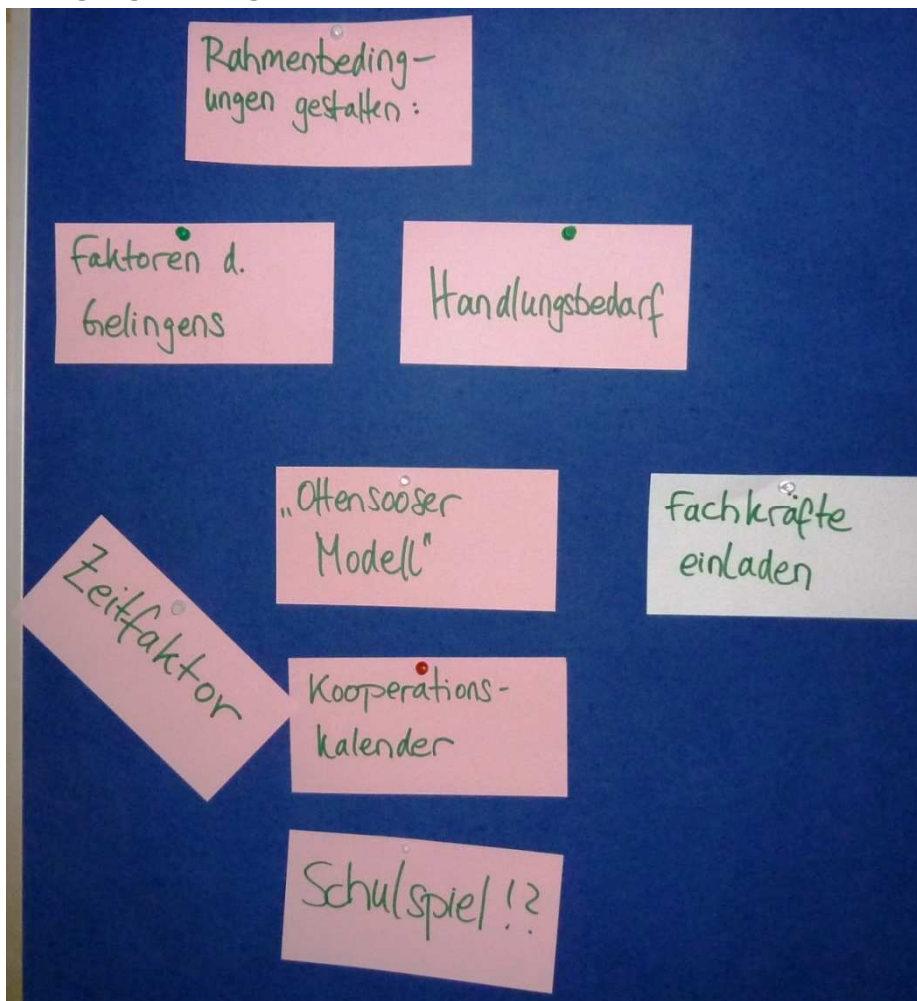 Rahmenbeding-
ungen gestalten:
Faktoren d.
Gelingens
Handlungsbedarf
„Ottensooser
Modell"
Fachkräfte
einladen
Zeitfaktor
Kooperations-
kalender
Schulspiel!?